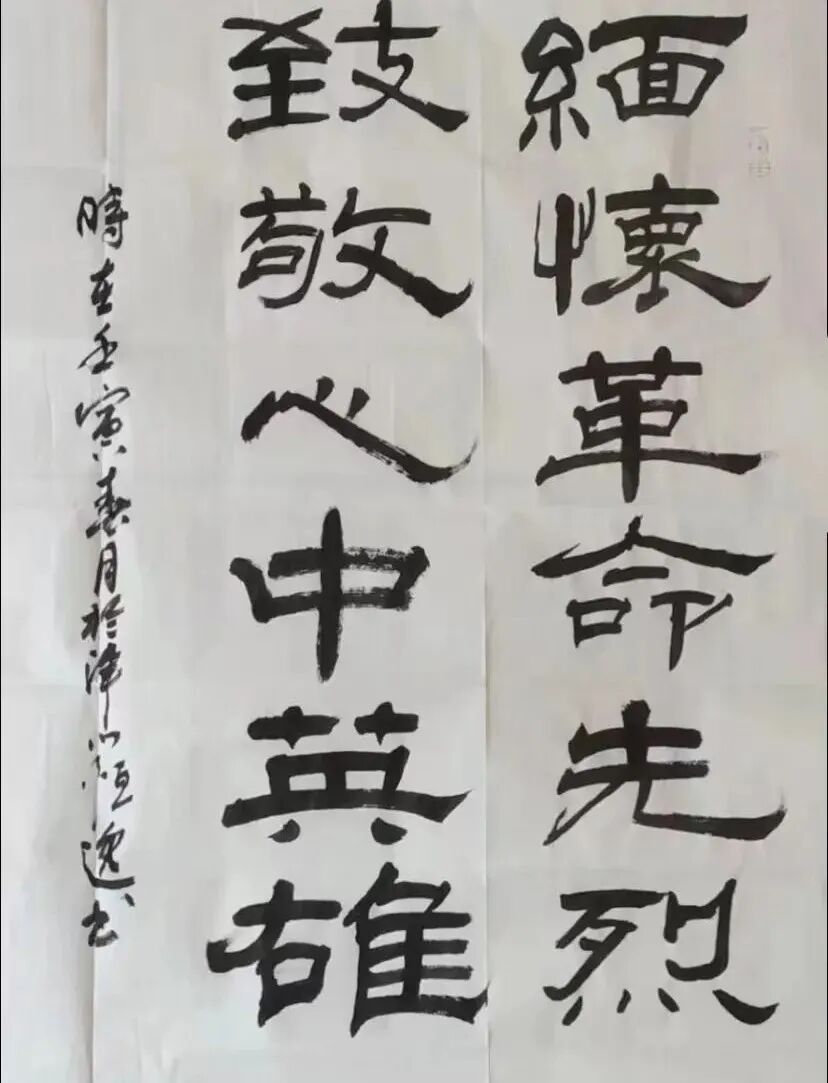 緬懷革命先烈
致敬心中英雄
時在壬寅春月於津門恒逸书